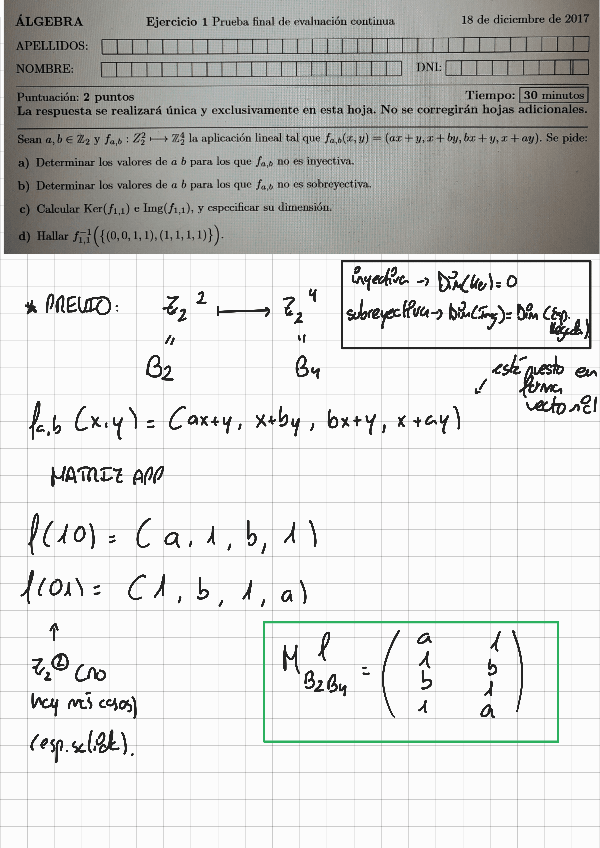 ÁLGEBRA Ejercicio 1 Prueba final de evaluación continua 18 de diciembre de 2017
APELLIDOS:
NOMBRE: DNI:
Puntuación: 2 puntos Tiempo: 30 minutos
La respuesta se realizará única y exclusivamente en esta hoja. No se corregirán hojas adicionales.
Sean a, b ∈ Z₂ y f_{a,b} : Z₂² ⟼ Z₂⁴ la aplicación lineal tal que f_{a,b}(x, y) = (ax + y, x + by, bx + y, x + ay). Se pide:
a) Determinar los valores de a b para los que f_{a,b} no es inyectiva.
b) Determinar los valores de a b para los que f_{a,b} no es sobreyectiva.
c) Calcular Ker(f_{1,1}) e Img(f_{1,1}), y especificar su dimensión.
d) Hallar f_{1,1}^{-1}({(0, 0, 1, 1), (1, 1, 1, 1)}).
inyectiva → Dim(Ker) = 0
subreyectiva → Dim(Img) = Dim (Esp. llegada)
* PREVIO: Z₂² ⟼ Z₂⁴
" "
B₂ B₄
está puesto en
forma
vectorial
f_{a,b} (x,y) = (ax+y, x+by, bx+y, x+ay)
MATRIZ APP
f(10) = (a, 1, b, 1)
f(01) = (1, b, 1, a)
↑
Z₂② (no
hay más casos)
(esp. salida).
M f B₂B₄ =
a 1
1 b
b 1
1 a